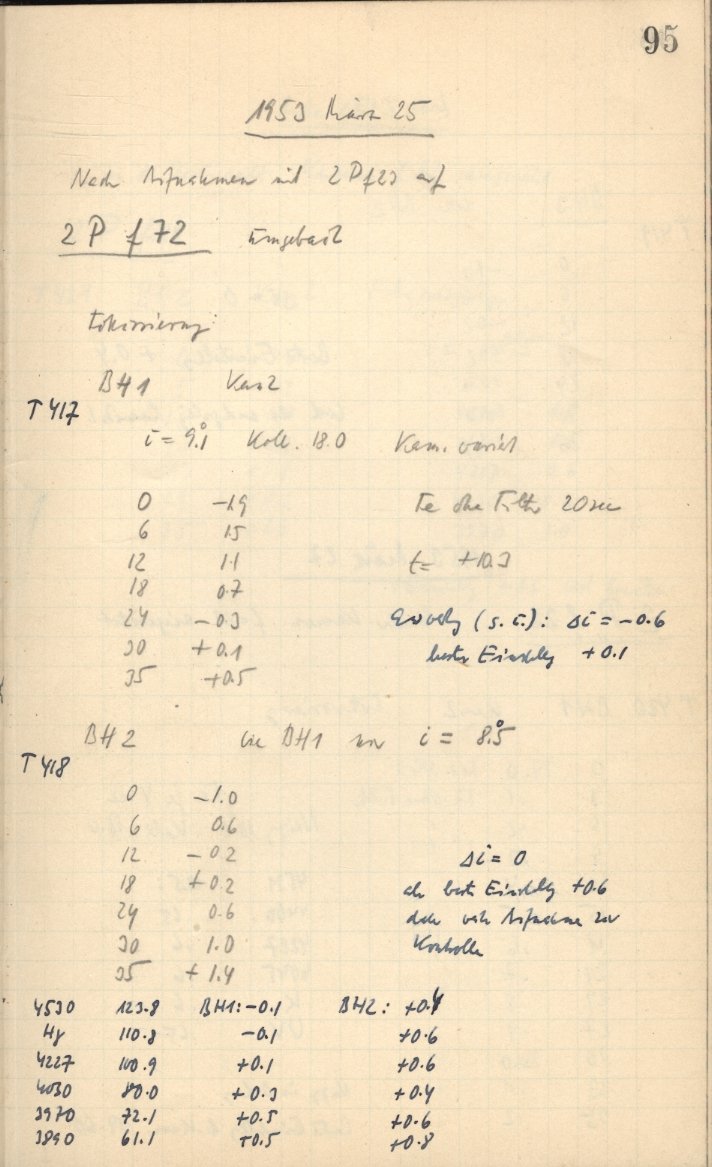 95
1953 März 25
Nach Aufnahmen mit 2Pf23 auf
2 P f 72 umgebaut
Fokussierung:
BH1 Kas2
T 417
i = 9.1° Koll. 18.0 Kam. variiert
0 -1.9 Fe ohne Filter 20 sec
6 1.5
12 1.1 t= +10.3
18 0.7
24 -0.3 (s. u.): Δi = -0.6
30 +0.1 beste Einstellg +0.1
35 +0.5
BH2 wie BH1 nur i = 8.5°
T 418
0 -1.0
6 0.6
12 -0.2 Δi = 0
18 +0.2 als beste Einstellg +0.6
24 0.6 Aufnahme zur
30 1.0 Kontrolle
35 +1.4
4530 123.8 BH1: -0.1 BH2: +0.4
Hγ 110.8 -0.1 +0.6
4227 100.9 +0.1 +0.6
4030 80.0 +0.3 +0.4
3970 72.1 +0.5 +0.6
3890 61.1 +0.5 +0.8